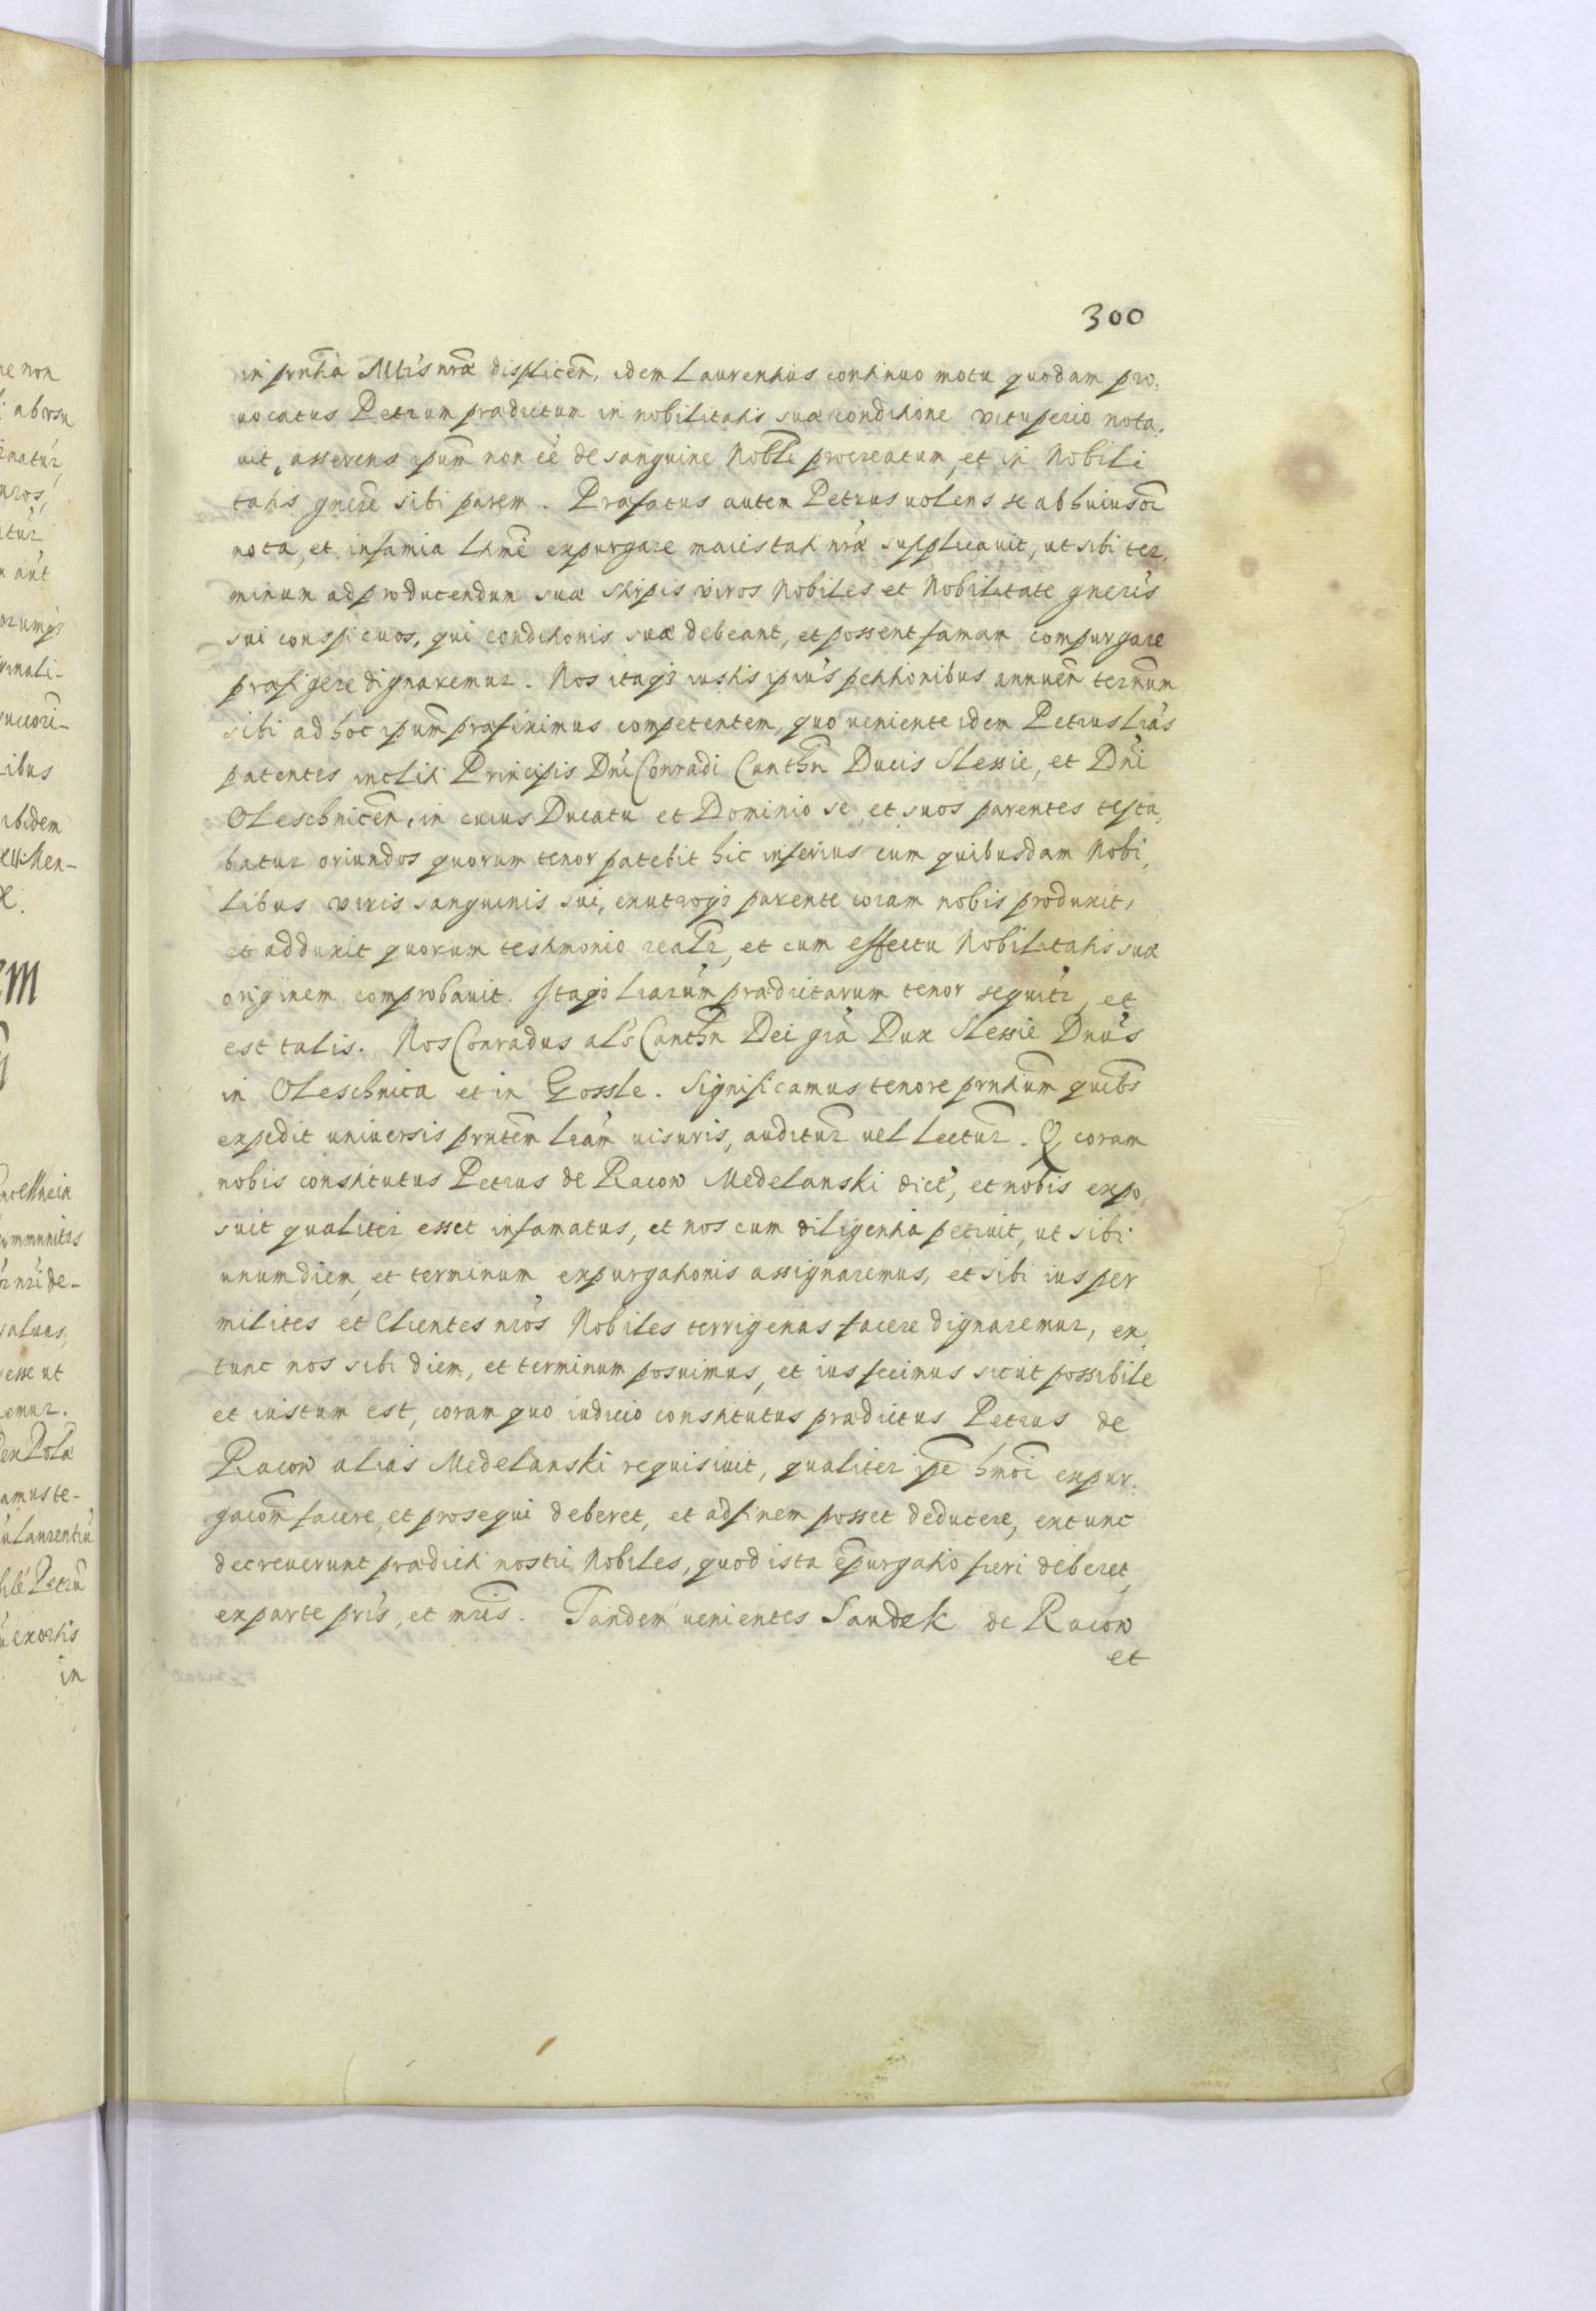 300
in prntia Mtis nrae displicen, idem Laurentius continuo motu quodam pro,
uocatus Petrum praedictum in nobilitatis suae conditione vituperio nota,
uit, asserens ipum non ee de sanguine Nobli procreatum, et in Nobili
tatis gnere sibi parem. Praefatus autem Petrus uolens se ab huiusoi
nota, et infamia Ltme expurgare maiestati nrae supplicauit, ut sibi ter,
minum ad producendum suae stirpis viros Nobiles et Nobilitate gneris
sui conspicuos, qui conditionis suae debeant, et possent famam compurgare
praefigere dignaremur. Nos itaq3 iustis ipius petitionibus annuen ternum
sibi ad hoc ipum praefiximus competentem, quo ueniente idem Petrus lras
patentes incliti Principis Dni Conradi Canthn Ducis Slessie, et Dni
Oleschnicen, in cuius Ducatu et Dominio se, et suos parentes testa,
batur oriundos quorum tenor patebit hic inferius cum quibusdam Nobi,
libus viris sanguinis sui, ex utroq3 parente coram nobis produxit,
et adduxit quorum testimonio realr, et cum effectu Nobilitatis suae
originem comprobauit. Itaq3 lrarum praedictarum tenor sequitr, et
est talis. Nos Conradus als Canthn Dei gra Dux Slessie Dnus
in Oleschnica et in Gossle. Significamus tenore prntium quibs
expedit universis prntem lram uisuris, auditur uel lectur. Q coram
nobis constitutus Petrus de Racow Medelanski dict, et nobis expo,
suit qualiter esset infamatus, et nos cum diligentia petiuit, ut sibi
unum diem, et terminum expurgationis assignaremus, et sibi ius per
milites et Clientes nros Nobiles terrigenas facere dignaremur, ex,
tunc nos sibi diem, et terminum posuimus, et ius fecimus sicut possibile
et iustum est, coram quo iudicio constitutus praedictus Petrus de
Racow alias Medelanski requisiuit, qualiter ipe hmoi expur,
gacom facere, et prosequi deberet, et ad finem posset deducere, extunc
decreuerunt praedicti nostri Nobiles, quod ista expurgatio fieri deberet,
ex parte pris, et mris. Tandem uenientes Sandek de Racow
et